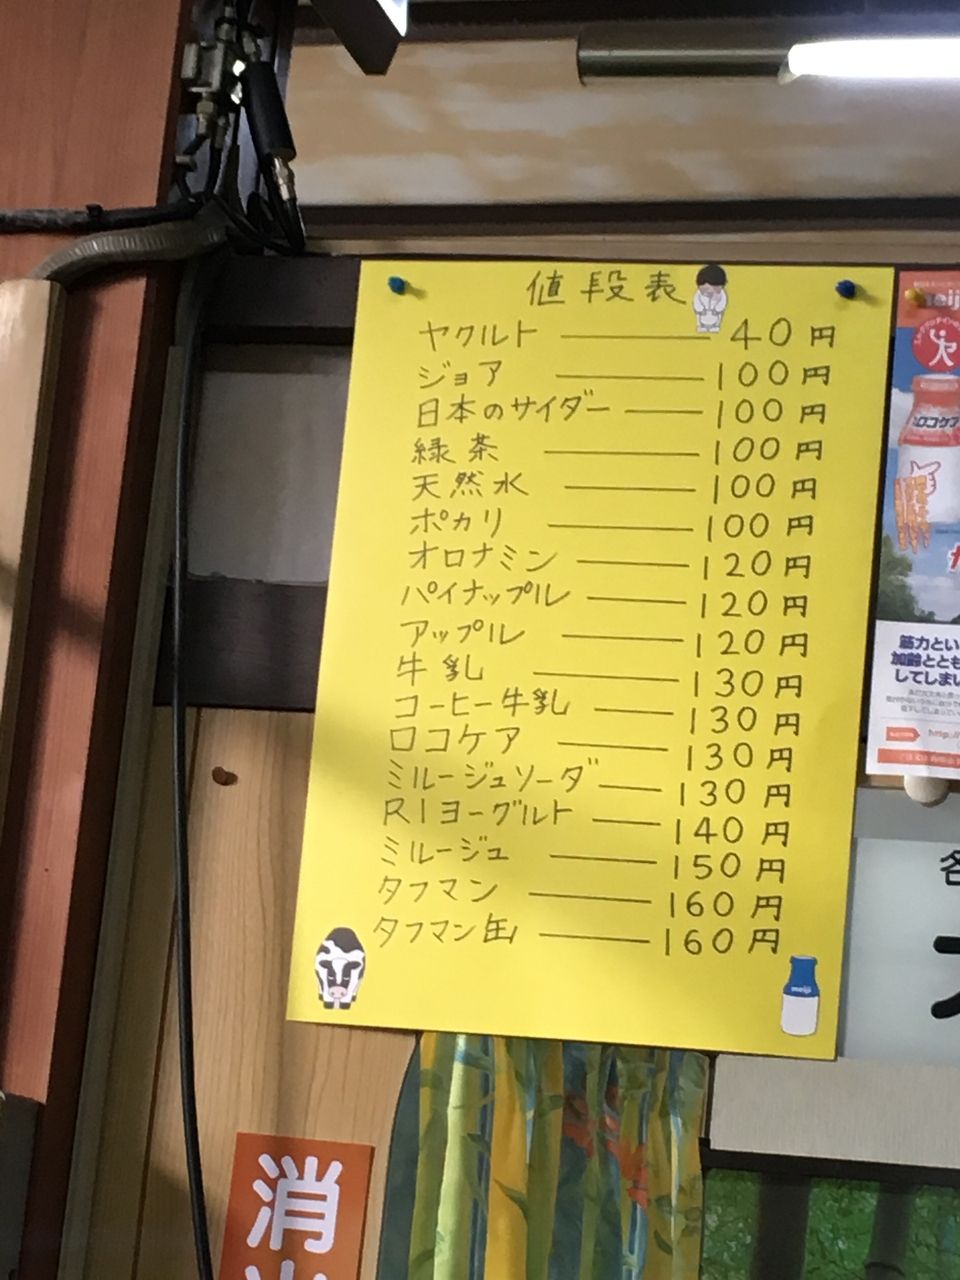 値段表
ヤクルト 40円
ジョア 100円
日本のサイダー 100円
緑茶 100円
天然水 100円
ポカリ 100円
オロナミン 120円
パイナップル 120円
アップル 120円
牛乳 130円
コーヒー牛乳 130円
ロコケア 130円
ミルージュソーダ 130円
R1ヨーグルト 140円
ミルージュ 150円
タフマン 160円
タフマン缶 160円
meiji
meiji
ロコケア
筋力とい
加齢ととも
してしまい
http://
各
消